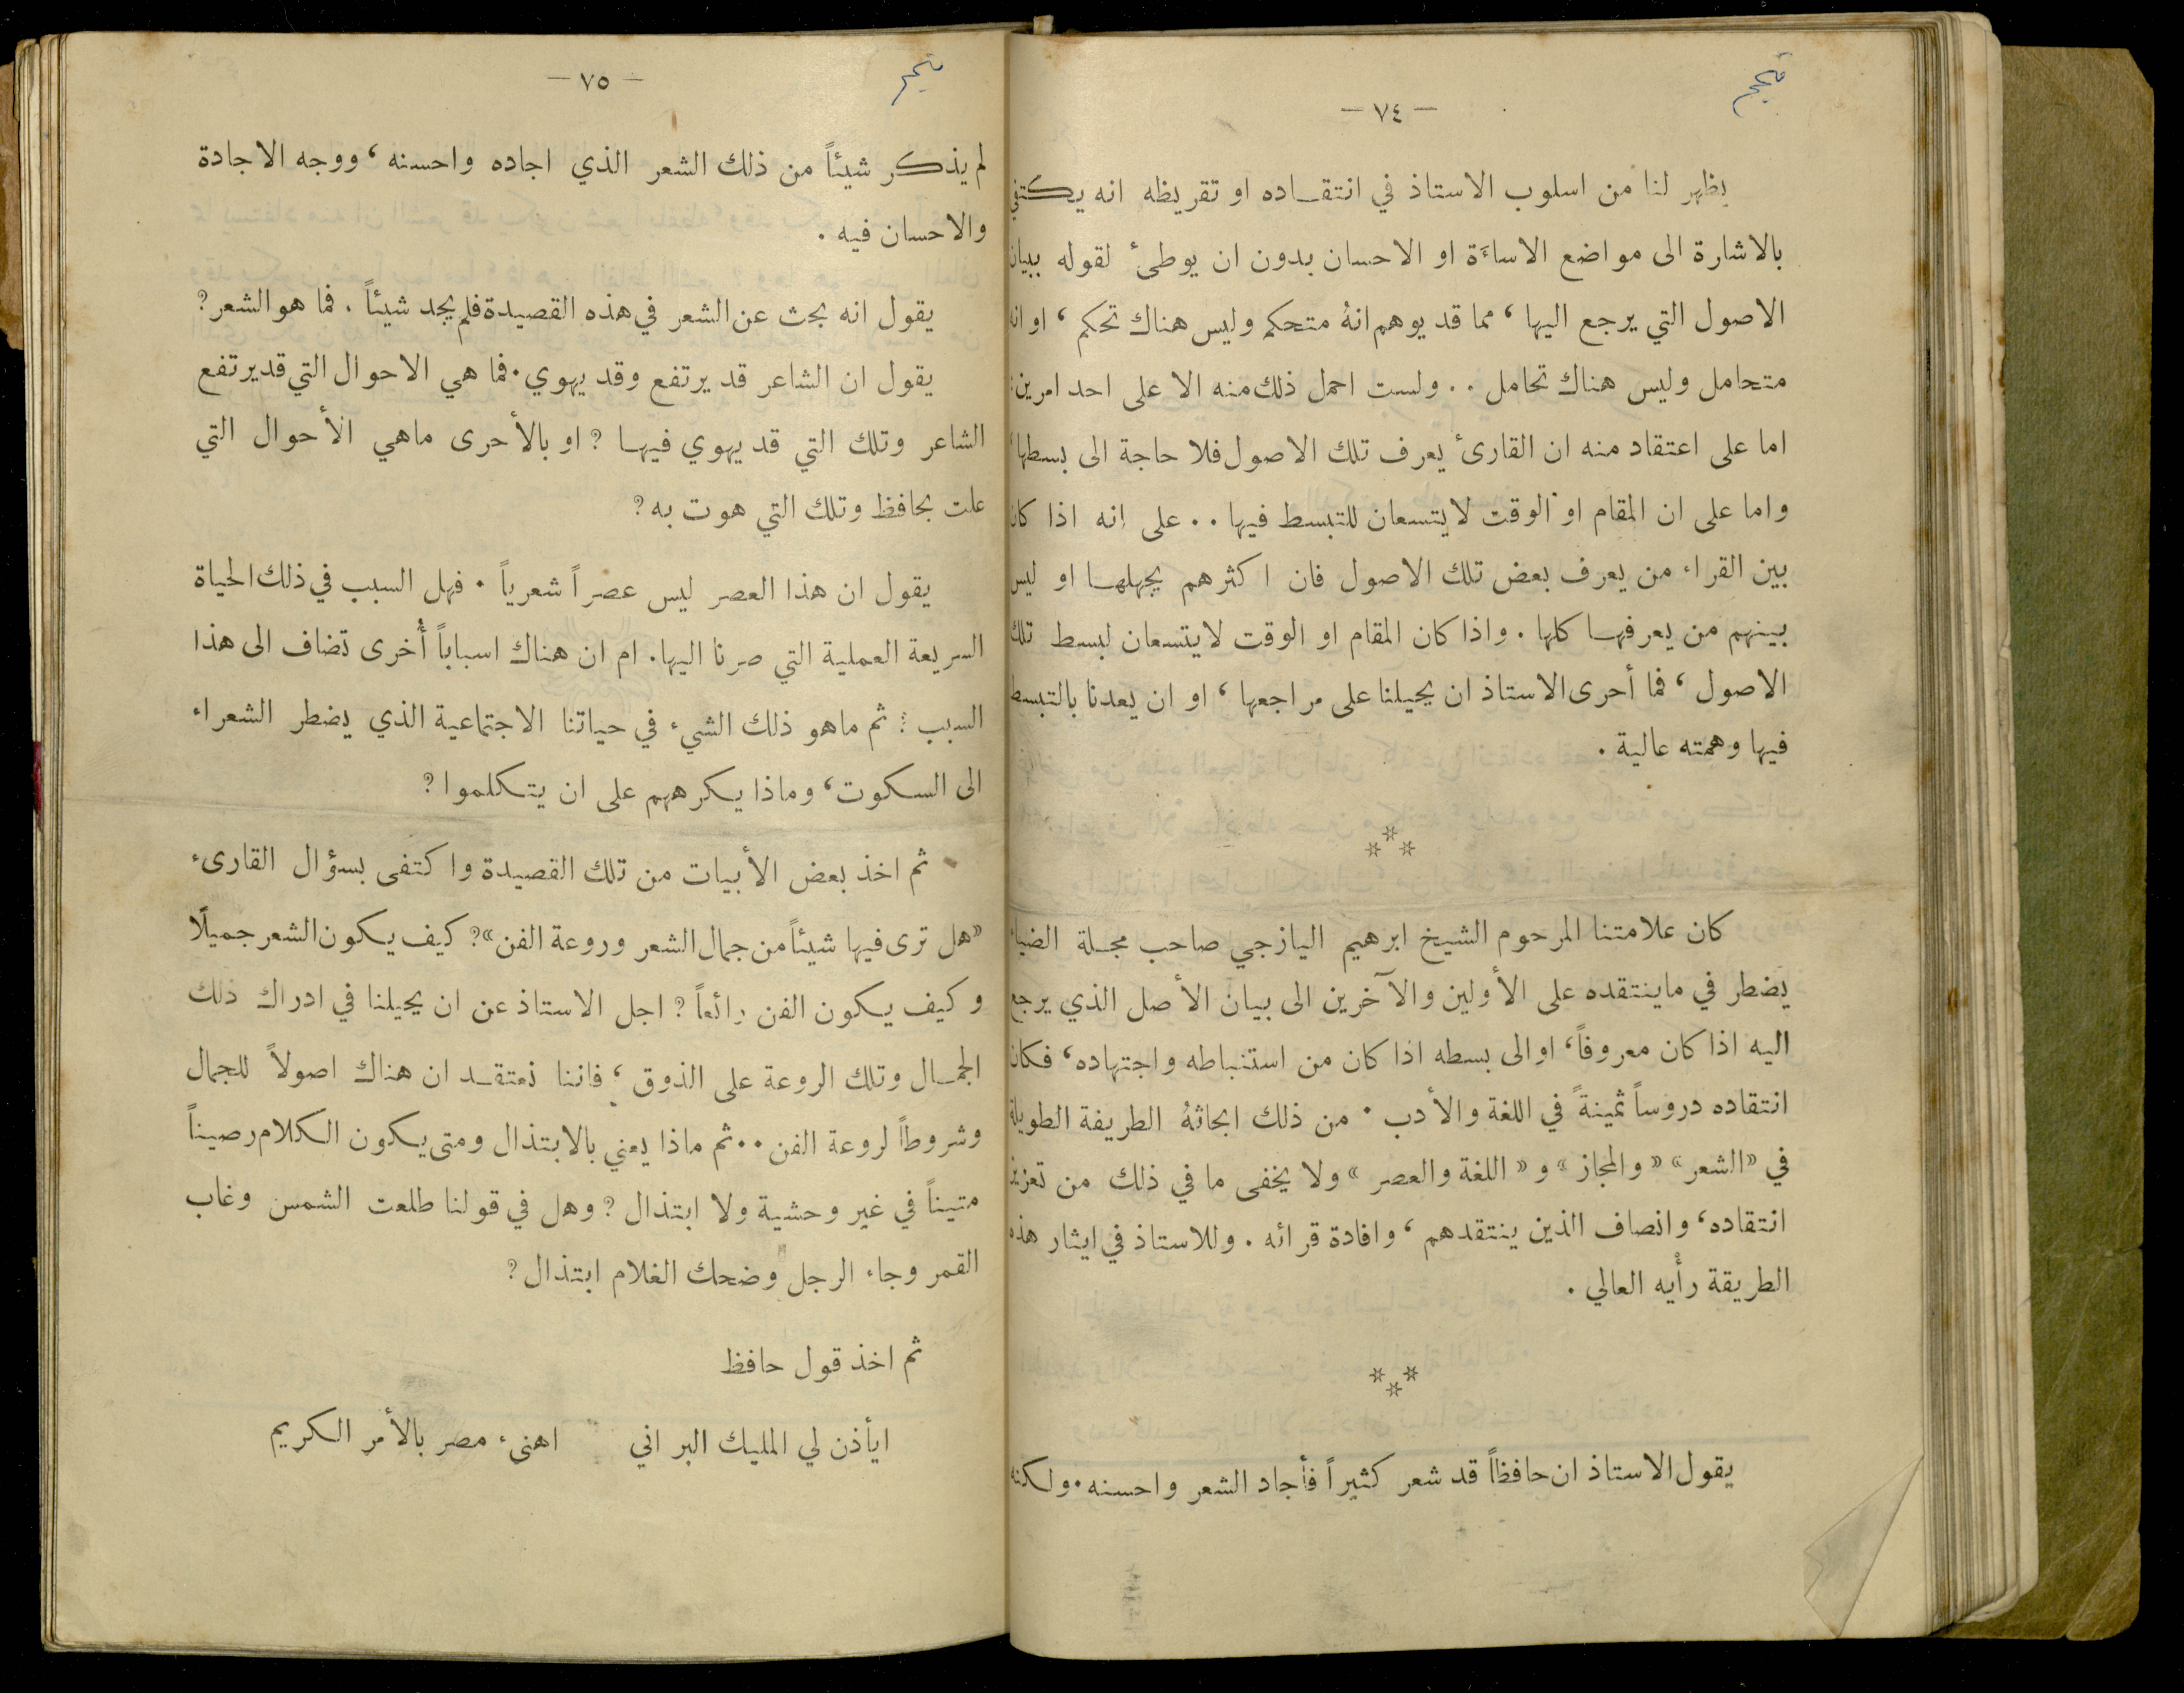 — ٧٤ —
يظهر لنا من اسلوب الاستاذ في انتقـاده او تقريظه انه يكتفي
بالاشارة الى مواضع الاساءَة او الاحسان بدون ان يوطئ لقوله ببيان
الاصول التي يرجع اليها ، مما قد يوهم انهُ متحكم وليس هناك تحكم ، او انه
متحامل وليس هناك تحامل . . ولست احمل ذلك منه الا على احد امرين :
اما على اعتقاد منه ان القارئ يعرف تلك الاصول فلا حاجة الى بسطها ،
واما على ان المقام او الوقت لا يتسعان للتبسط فيها . . على انه اذا كان
بين القراء من يعرف بعض تلك الاصول فان اكثرهم يجهلهـا او ليس
بينهم من يعرفهـا كلها . واذا كان المقام او الوقت لا يتسعان لبسط تلك
الاصول ، فما أحرى الاستاذ ان يحيلنا على مراجعها ، او ان يعدنا بالتبسط
فيها وهمته عالية .
***
كان علامتنا المرحوم الشيخ ابرهيم اليازجي صاحب مجـلة الضياء
يضطر في ماينتقده على الأولين والآخرين الى بيان الأصل الذي يرجع
اليه اذا كان معروفاً ، او الى بسطه اذا كان من استنباطه واجتهاده ، فكان
انتقاده دروساً ثمينةً في اللغة والأدب . من ذلك ابحاثهُ الطريفة الطويلة
في «الشعر» « والمجاز » و « اللغة والعصر » ولا يخفى ما في ذلك من تعزيز
انتقاده ، وانصاف الذين ينتقدهم ، وافادة قرائه . وللاستاذ في ايثار هذه
الطريقة رأْيه العالي .
***
يقول الاستاذ ان حافظاً قد شعر كثيراً فأجاد الشعر واحسنه . ولكنه
— ٧٥ —
لم يذكر شيئاً من ذلك الشعر الذي اجاده واحسنه ، ووجه الاجادة
والاحسان فيه .
يقول انه بحث عن الشعر في هذه القصيدة فلم يجد شيئاً . فما هو الشعر ?
يقول ان الشاعر قد يرتفع وقد يهوي . فما هي الاحوال التي قد يرتفع
الشاعر وتلك التي قد يهوي فيهـا ? او بالأحرى ماهي الأحوال التي
علت بحافظ وتلك التي هوت به ?
يقول ان هذا العصر ليس عصراً شعرياً . فهل السبب في ذلك الحياة
السريعة العملية التي صرنا اليها . ام ان هناك اسباباً أُخرى تضاف الى هذا
السبب ; ثم ماهو ذلك الشيء في حياتنا الاجتماعية الذي يضطر الشعراء
الى السكوت ، وماذا يكرههم على ان يتكلموا ?
ثم اخذ بعض الأبيات من تلك القصيدة واكتفى بسؤال القارىء
«هل ترى فيها شيئاً من جمال الشعر وروعة الفن» ? كيف يكون الشعر جميلًا
وكيف يكون الفن رائعاً ? اجل الاستاذ عن ان يحيلنا في ادراك ذلك
الجمـال وتلك الروعة على الذوق ، فاننا نعتقـد ان هناك اصولاً للجمال
وشروطاً لروعة الفن . . ثم ماذا يعني بالابتذال ومتى يكون الكلام رصيناً
متيناً في غير وحشية ولا ابتذال ? وهل في قولنا طلعت الشمس وغاب
القمر وجاء الرجل وضحك الغلام ابتذال ?
ثم اخذ قول حافظ
ايأذن لي المليك البر اني    اهنىء مصر بالأمر الكريم